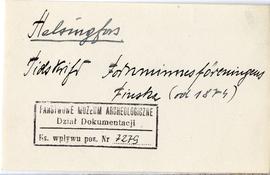 Helsingfors
Tidskrift Fornminnesföreningens
Finska (od 1874)
PAŃSTWOWE MUZEUM ARCHEOLOGICZNE
Dział Dokumentacji
Ks. wpływu poz. Nr 7279